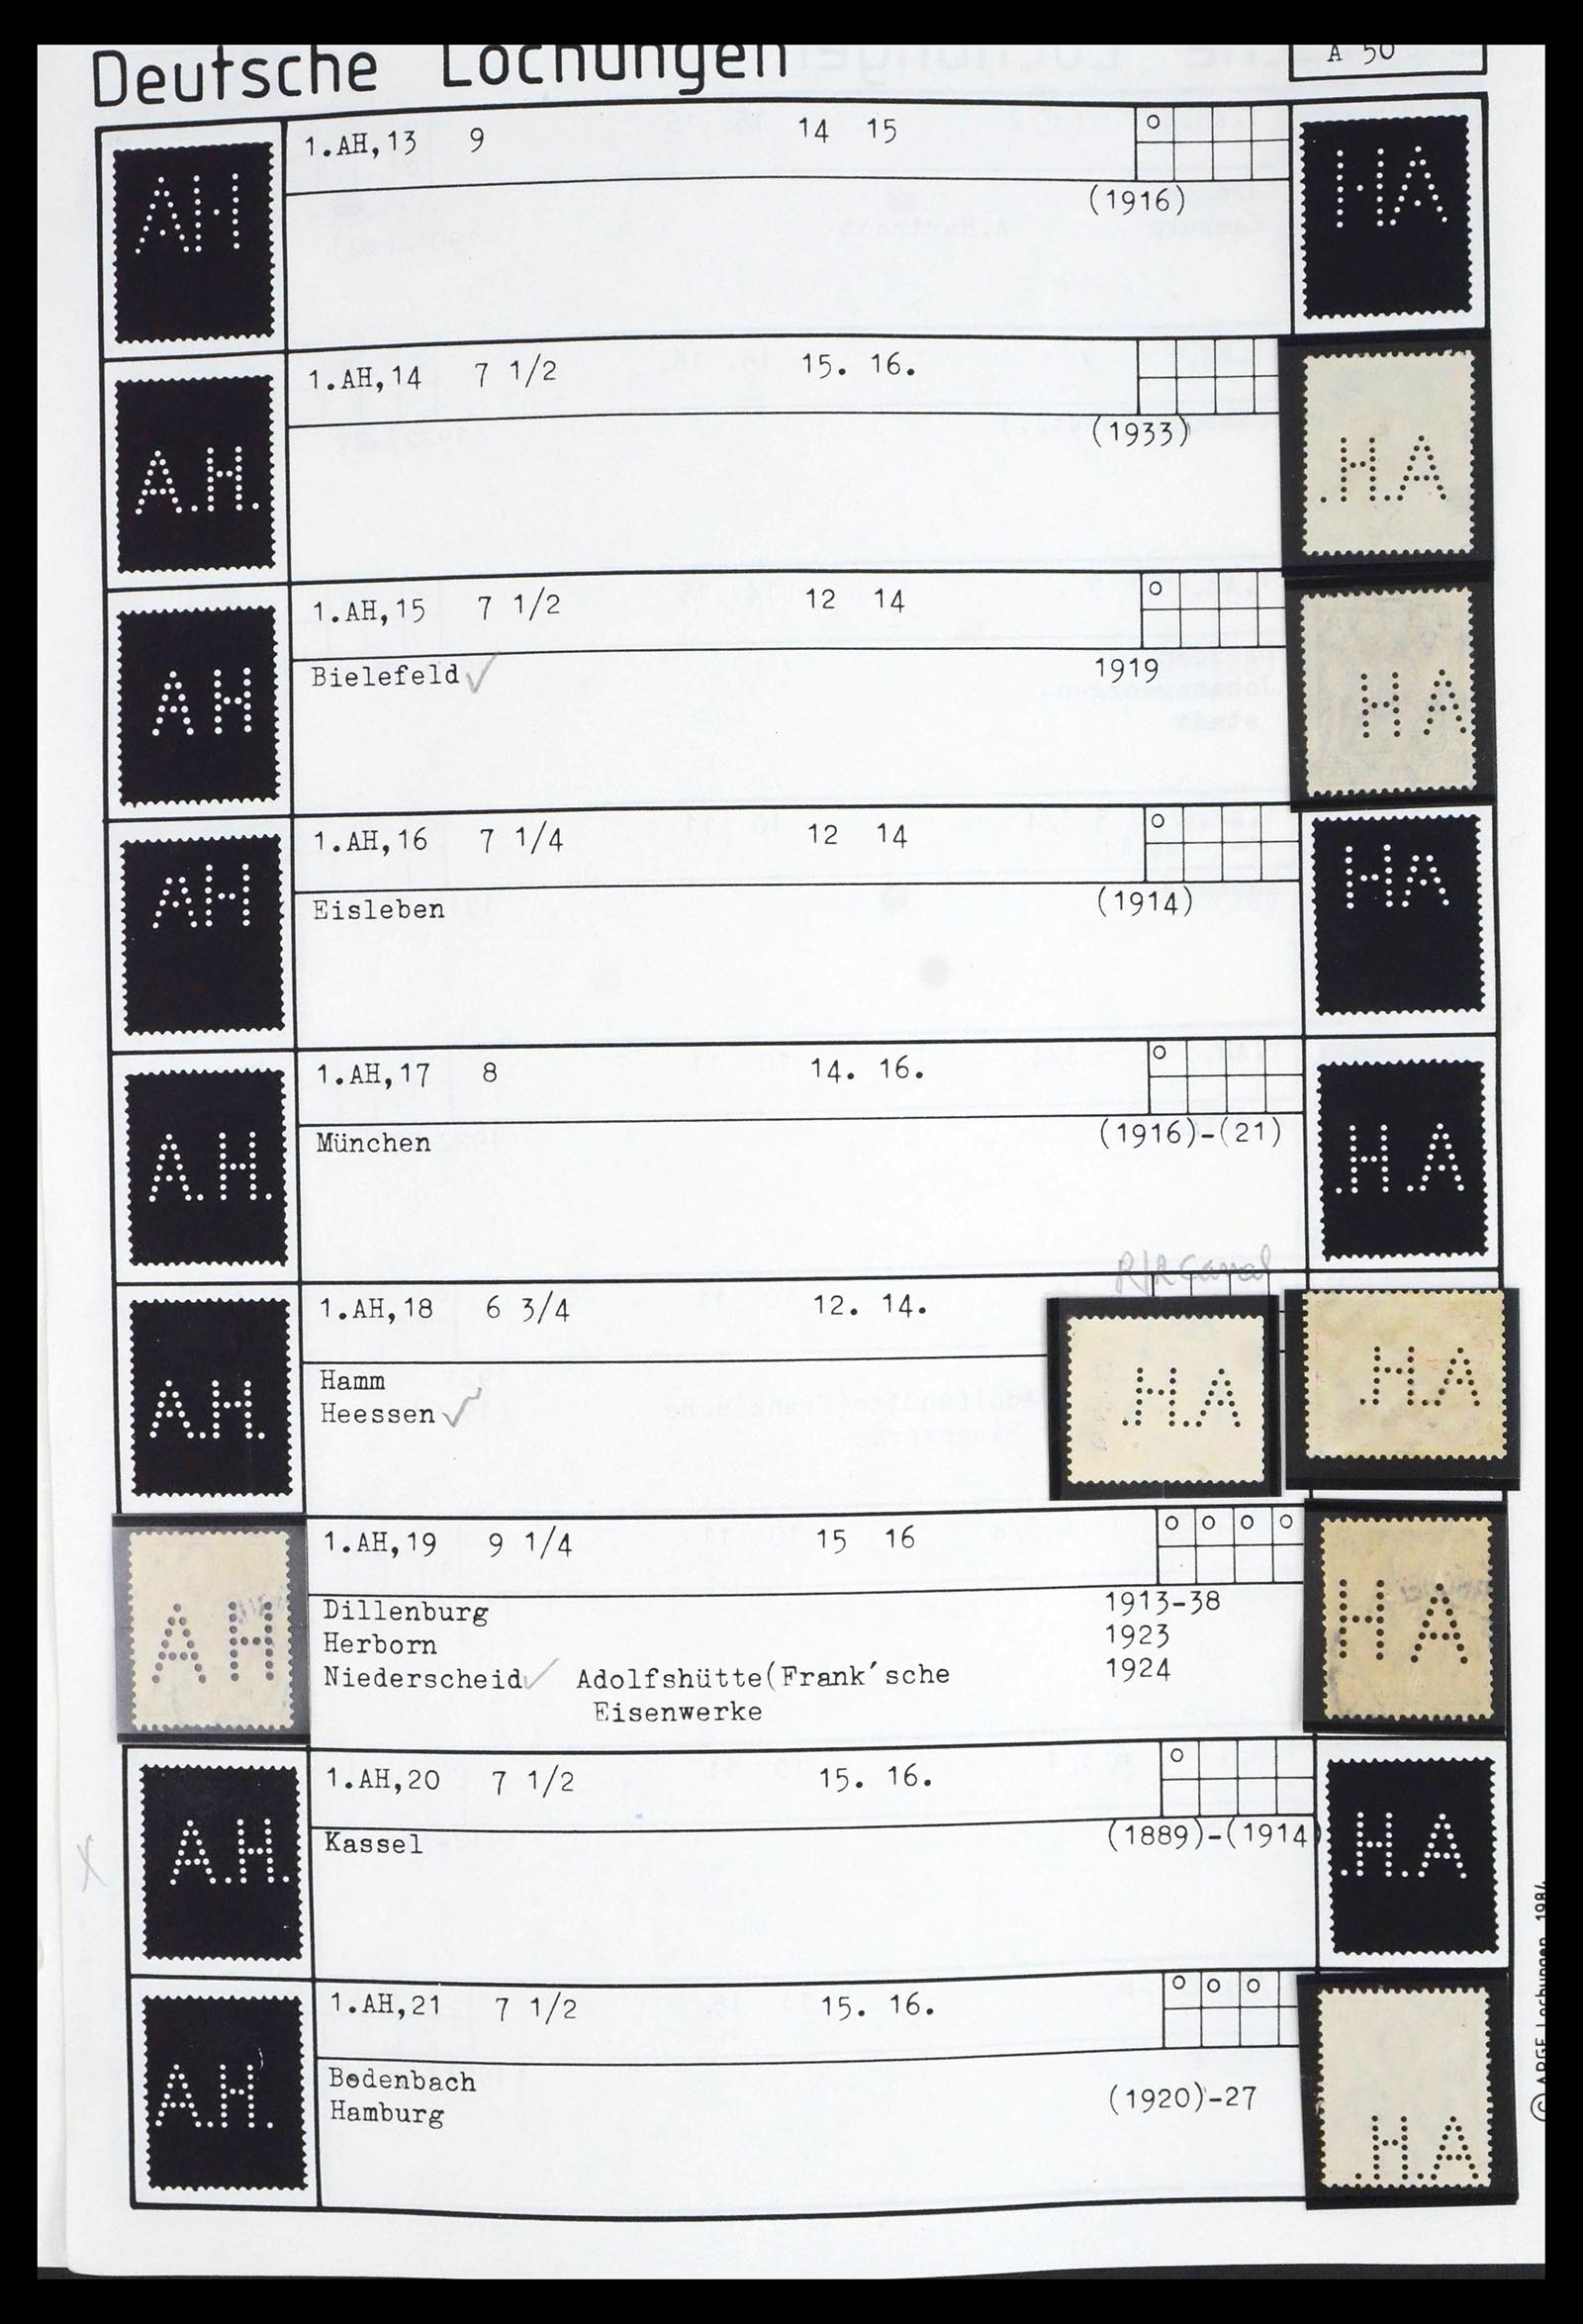 Deutsche Lochungen
A 50
AH
1.AH,13 9 14 15 o
(1916)
HA
A.H.
1.AH,14 7 1/2 15. 16.
(1933)
.H.A
AH
1.AH,15 7 1/2 12 14 o
Bielefeld✓ 1919
HA
AH
1.AH,16 7 1/4 12 14 o
Eisleben (1914)
HA
A.H.
1.AH,17 8 14. 16. o
München (1916)-(21)
.H.A
A.H.
1.AH,18 6 3/4 12. 14.
Hamm
Heessen✓
.H.A
.H.A
A H
1.AH,19 9 1/4 15 16 o o o o
Dillenburg 1913-38
Herborn 1923
Niederscheid✓ Adolfshütte(Frank´sche 1924
Eisenwerke
H A
X
A.H.
1.AH,20 7 1/2 15. 16. o
Kassel (1889)-(1914)
.H.A
A.H.
1.AH,21 7 1/2 15. 16. o o o
Bodenbach
Hamburg (1920)-27
.H.A
© ARGE Lochungen 1984